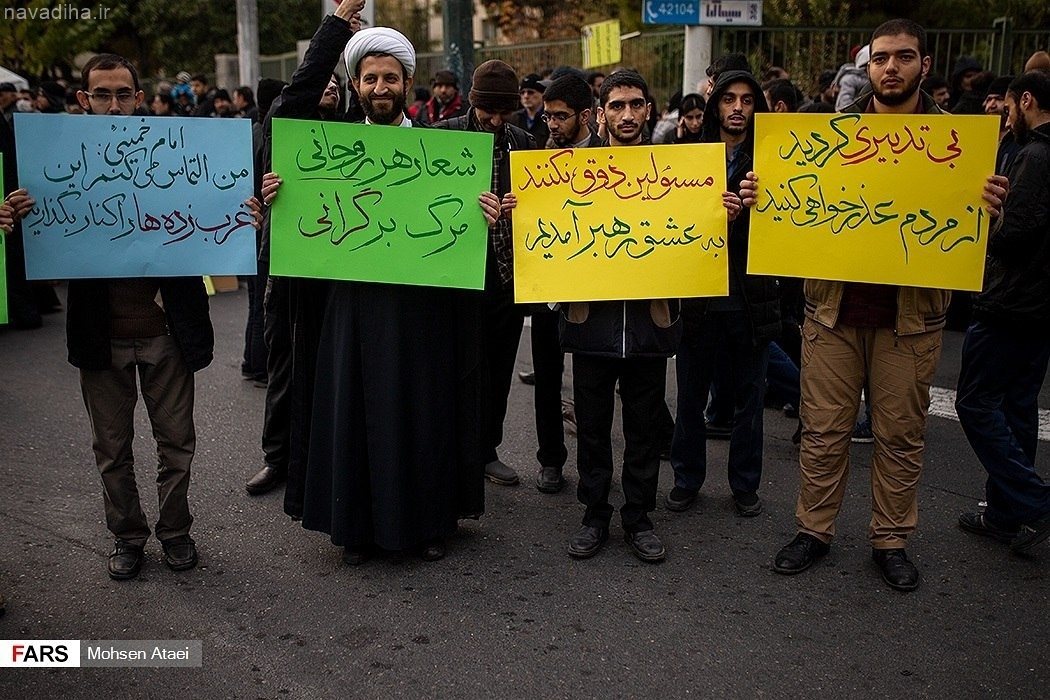 navadiha.ir
42104
سینا
امام خمینیؒ
من التماس می کنم این
غرب زده ها را کنار بگذارید
شعار هر روحانی
مرگ بر گرانی
مسئولین ذوق نکنند
به عشق رهبر آمدیم
بی تدبیری کردید
از مردم عذرخواهی کنید
FARS
Mohsen Ataei